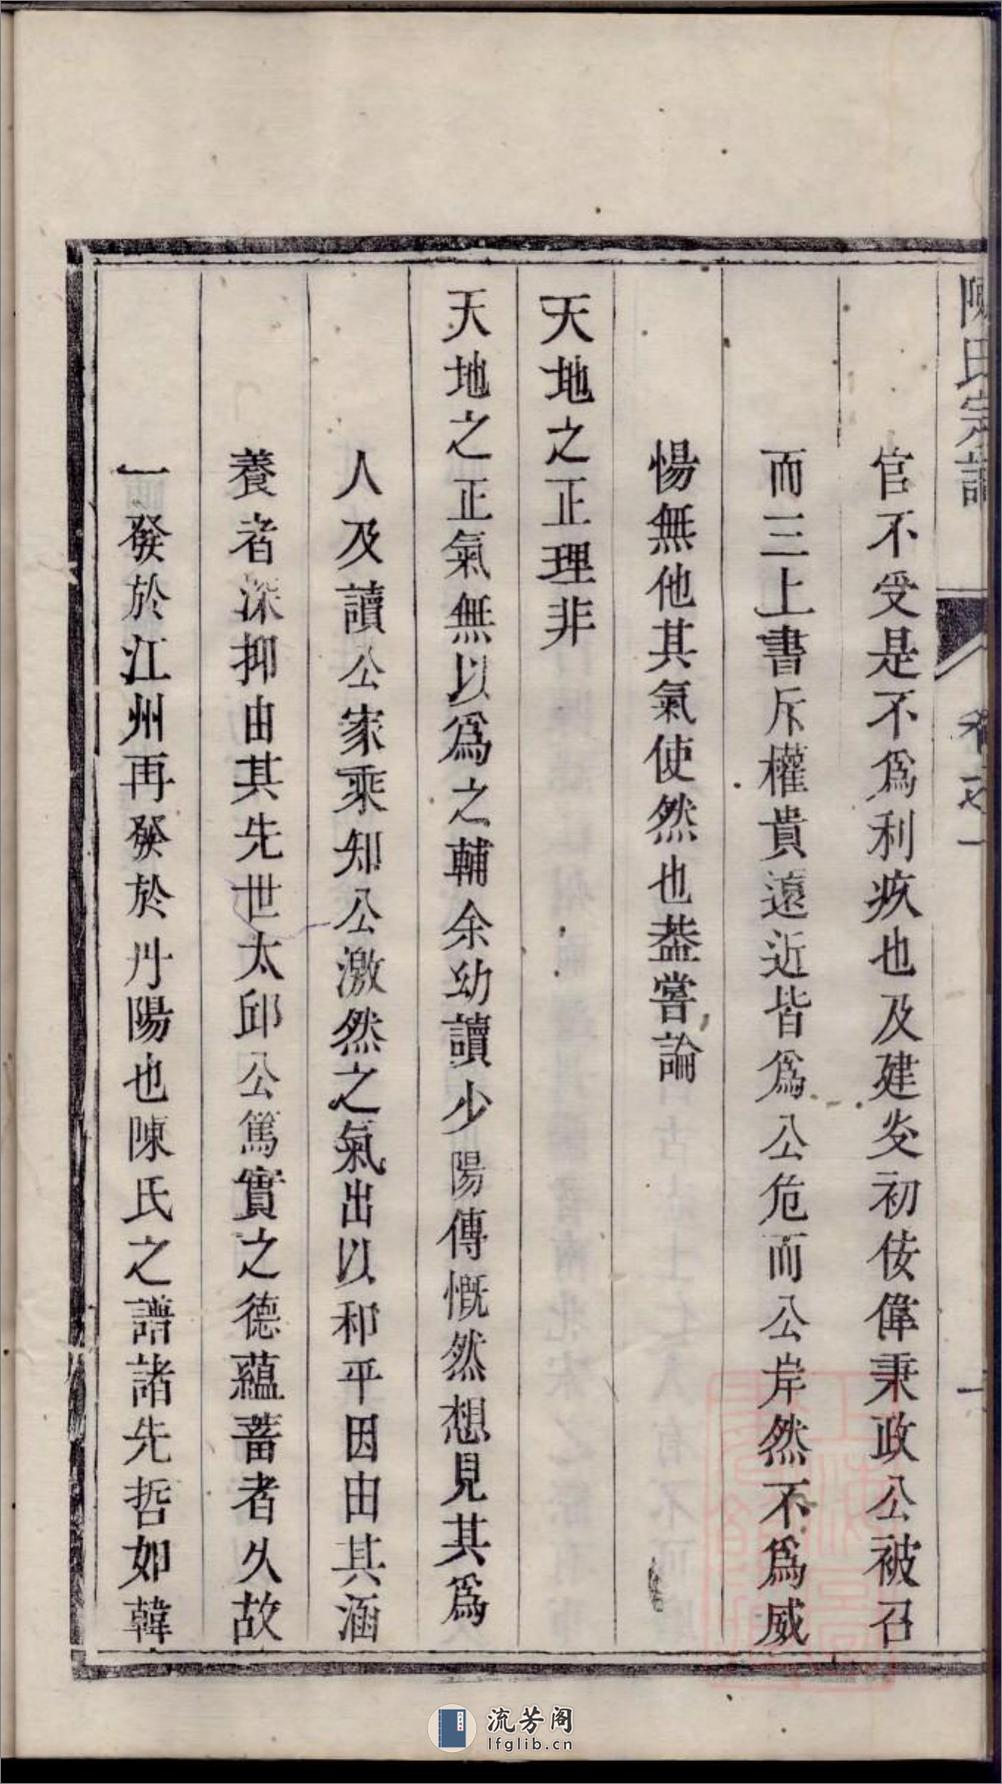 陳氏宗譜
官不受是不爲利疚也及建炎初佞僞秉政公被召
而三上書斥權貴遠近皆爲公危而公岸然不爲威
惕無他其氣使然也葢嘗論
天地之正理非
天地之正氣無以爲之輔余幼讀少陽傳慨然想見其爲
人及讀公家乘知公激然之氣出以和平因由其涵
養者深抑由其先世太邱公篤實之德蘊蓄者久故
一發於江州再發於丹陽也陳氏之譜諸先哲如韓
流芳阁
lfglib.cn